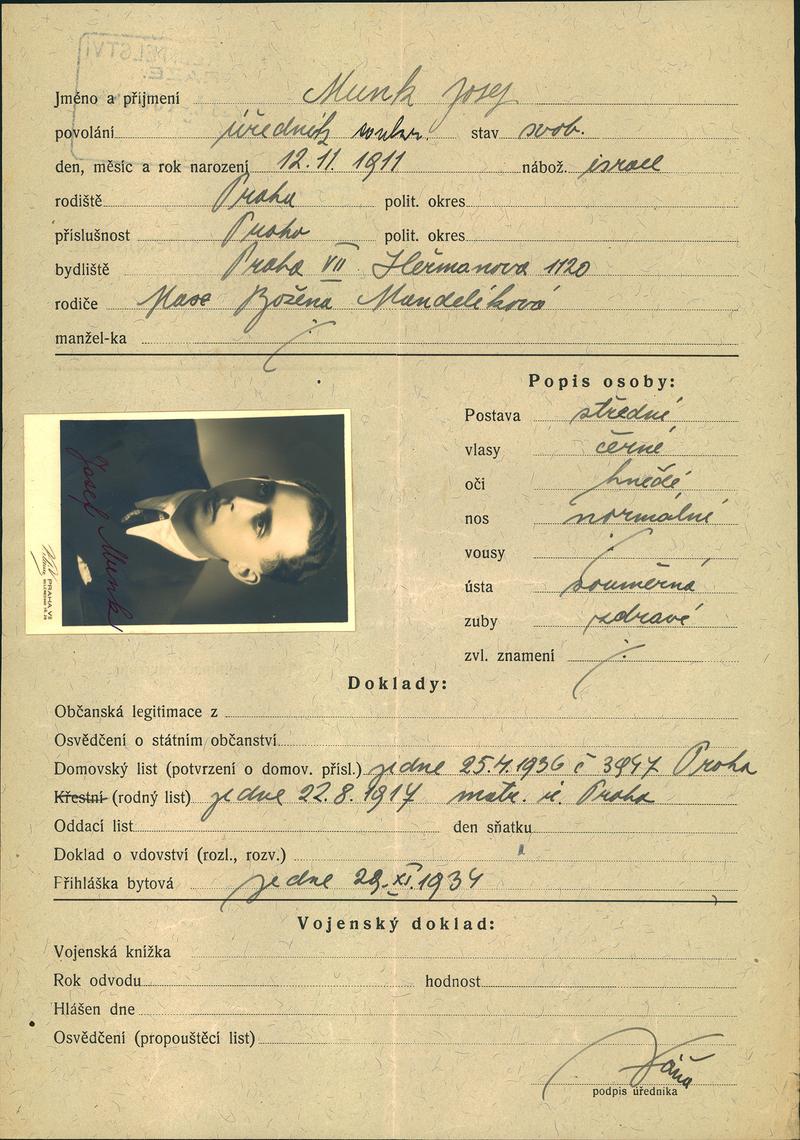 Jméno a příjmení Munk Josef
povolání úředník soukr. stav svob.
den, měsíc a rok narození 12.11.1911 nábož. israel
rodiště Praha polit. okres
příslušnost Praha polit. okres
bydliště Praha VII Heřmanova 1120
rodiče Max Božena Mandelíková
manžel-ka ./.
Popis osoby:
Postava střední
vlasy černé
oči hnědé
nos normální
vousy ./.
ústa souměrná
zuby zdravé
zvl. znamení ./.
Josef Munk
PRAHA VII
Doklady:
Občanská legitimace z
Osvědčení o státním občanství
Domovský list (potvrzení o domov. přísl.) ze dne 25.4.1936 č 3947 Praha
Křestní (rodný list) ze dne 22.8.1917 matr. ú. Praha
Oddací list den sňatku
Doklad o vdovství (rozl., rozv.)
Přihláška bytová ze dne 29.XI.1934
Vojenský doklad:
Vojenská knížka
Rok odvodu hodnost
Hlášen dne
Osvědčení (propouštěcí list)
Váňa
podpis úředníka